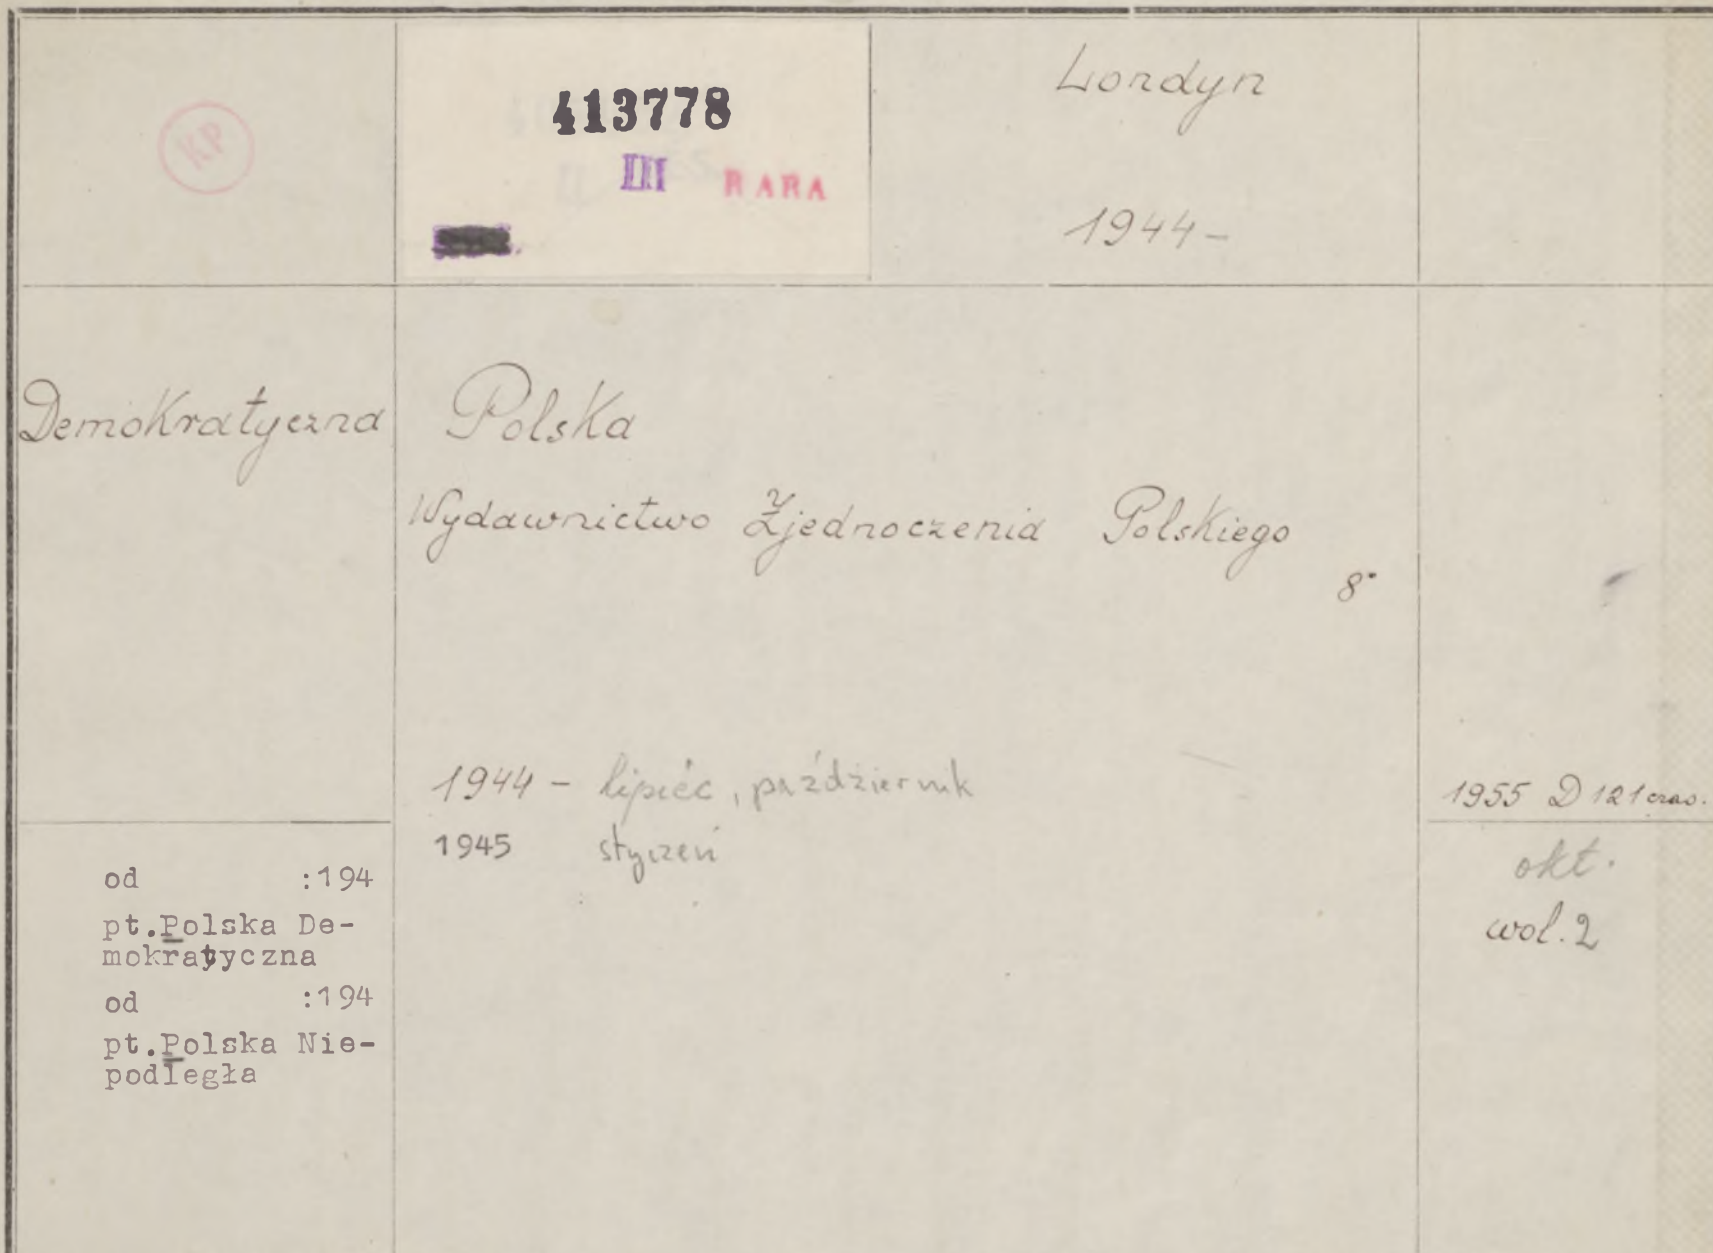 KP
413778
III RARA
Londyn
1944-
Demokratyczna Polska
Wydawnictwo Zjednoczenia Polskiego
8°
1944 - lipiec, październik
1945 styczeń
1955 D 121 czas.
okt.
wol. 2
od :194
pt.Polska De-
mokratyczna
od :194
pt.Polska Nie-
podległa